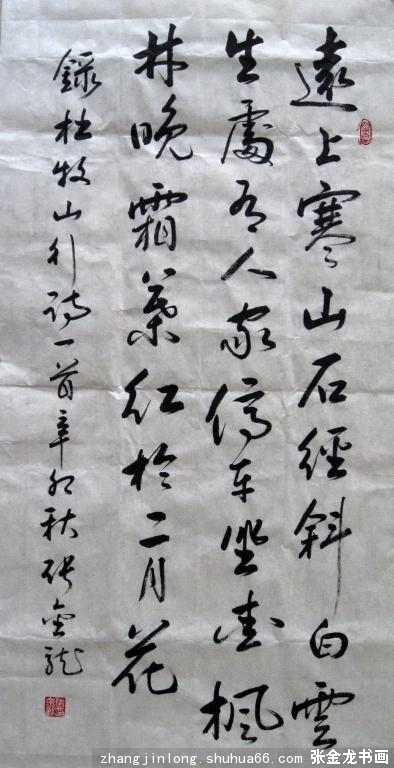 遠上寒山石經斜白雲
生處有人家停車坐愛楓
林晚霜葉紅於二月花
錄杜牧山行詩一首辛卯秋張金龍
zhangjinlong.shuhua66.com 张金龙书画